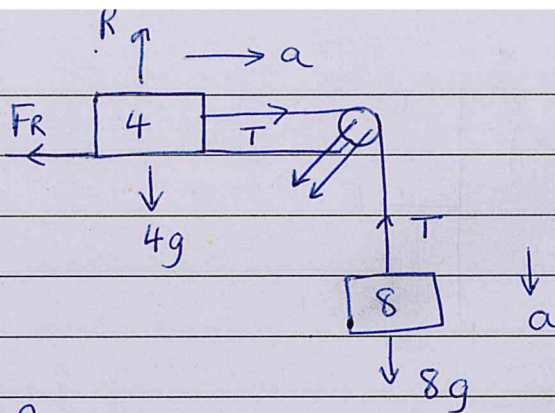 R
a
FR
4
T
4g
T
8
a
8g